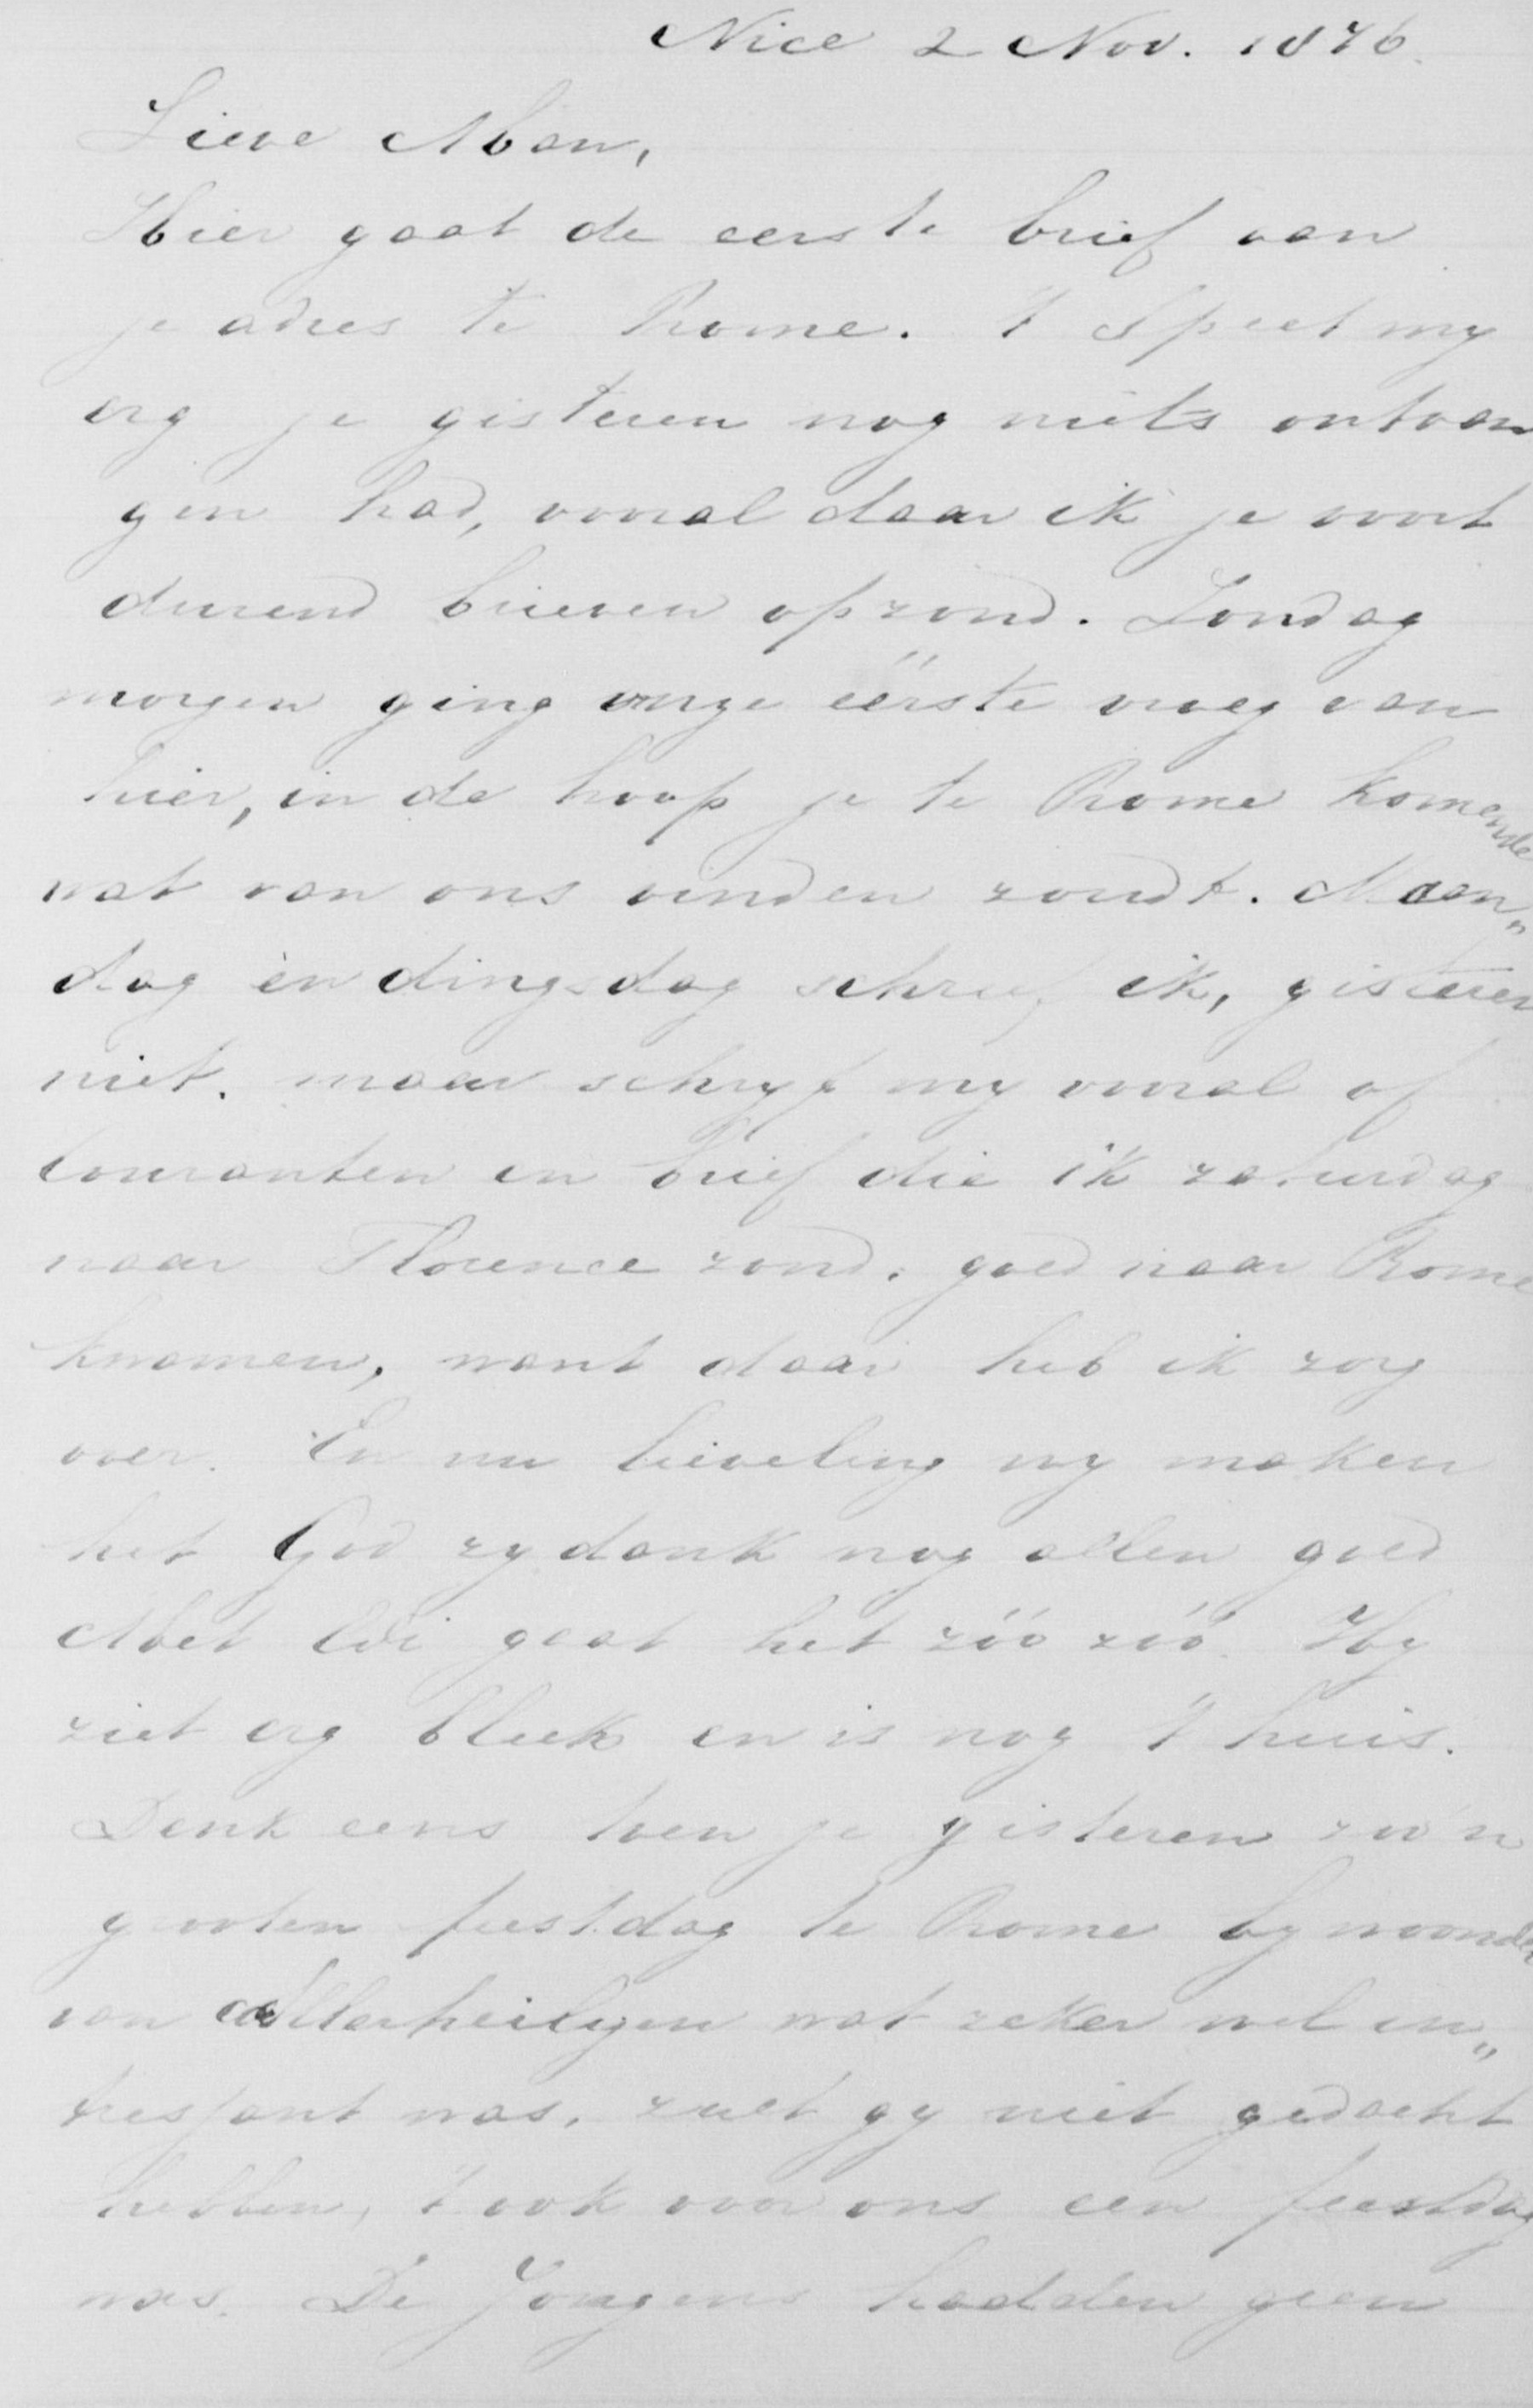 Nice 2 Nov. 1876.
Lieve Man,
Hier gaat de eerste brief aan
je adres te Rome. 't Speet my
erg je gisteren nog niets ontvan
gen had, vooral daar ik je voort
durend brieven opzond. Zondag
morgen ging onze eérste vroeg van
hier, in de hoop je te Rome komende
wat van ons vinden zoudt. Maan„
dag èn dingsdag schreef ik, gisteren
niet. maar schryf my vooral of
couranten en brief die ik zaturdag
naar Florence zond, goed naar Rome
kwamen, want daar heb ik zorg
over. En nu lieveling wy maken
het God zy dank nog allen goed
Met Edi gaat het zóó zóó. Hy
ziet erg bleek en is nog 't huis.
Denk eens toen je gisteren zoo'n
grooten feestdag te Rome bywoonde
van Allerheiligen wat zeker wel in„
tressant was, zult gy niet gedacht
hebben, 't ook voor ons een feestdag
was. De Jongens hadden geen